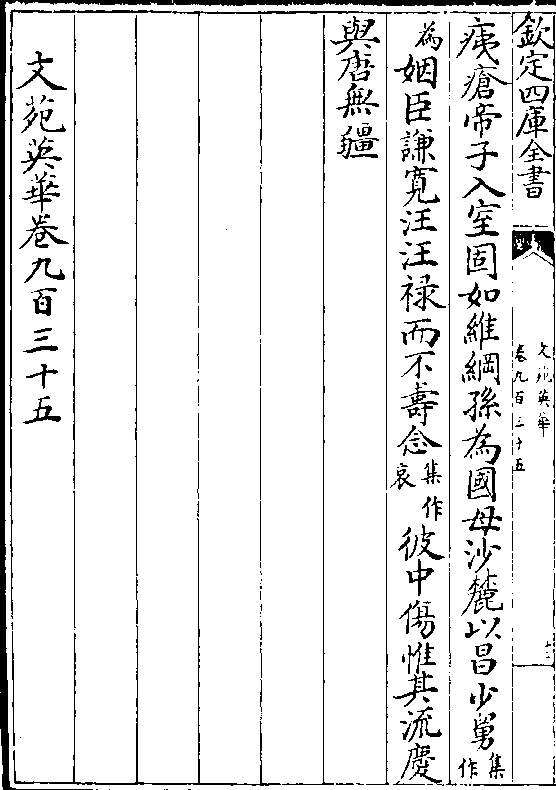 欽定四庫全書
文苑英華
卷九百三十五
十三
痍瘡帝子入室固如維綱孫為國母沙麓以昌少舅集作
為姻臣謙寛汪汪禄而不壽念集作哀彼中傷惟其流慶
與唐無疆
文苑英華卷九百三十五